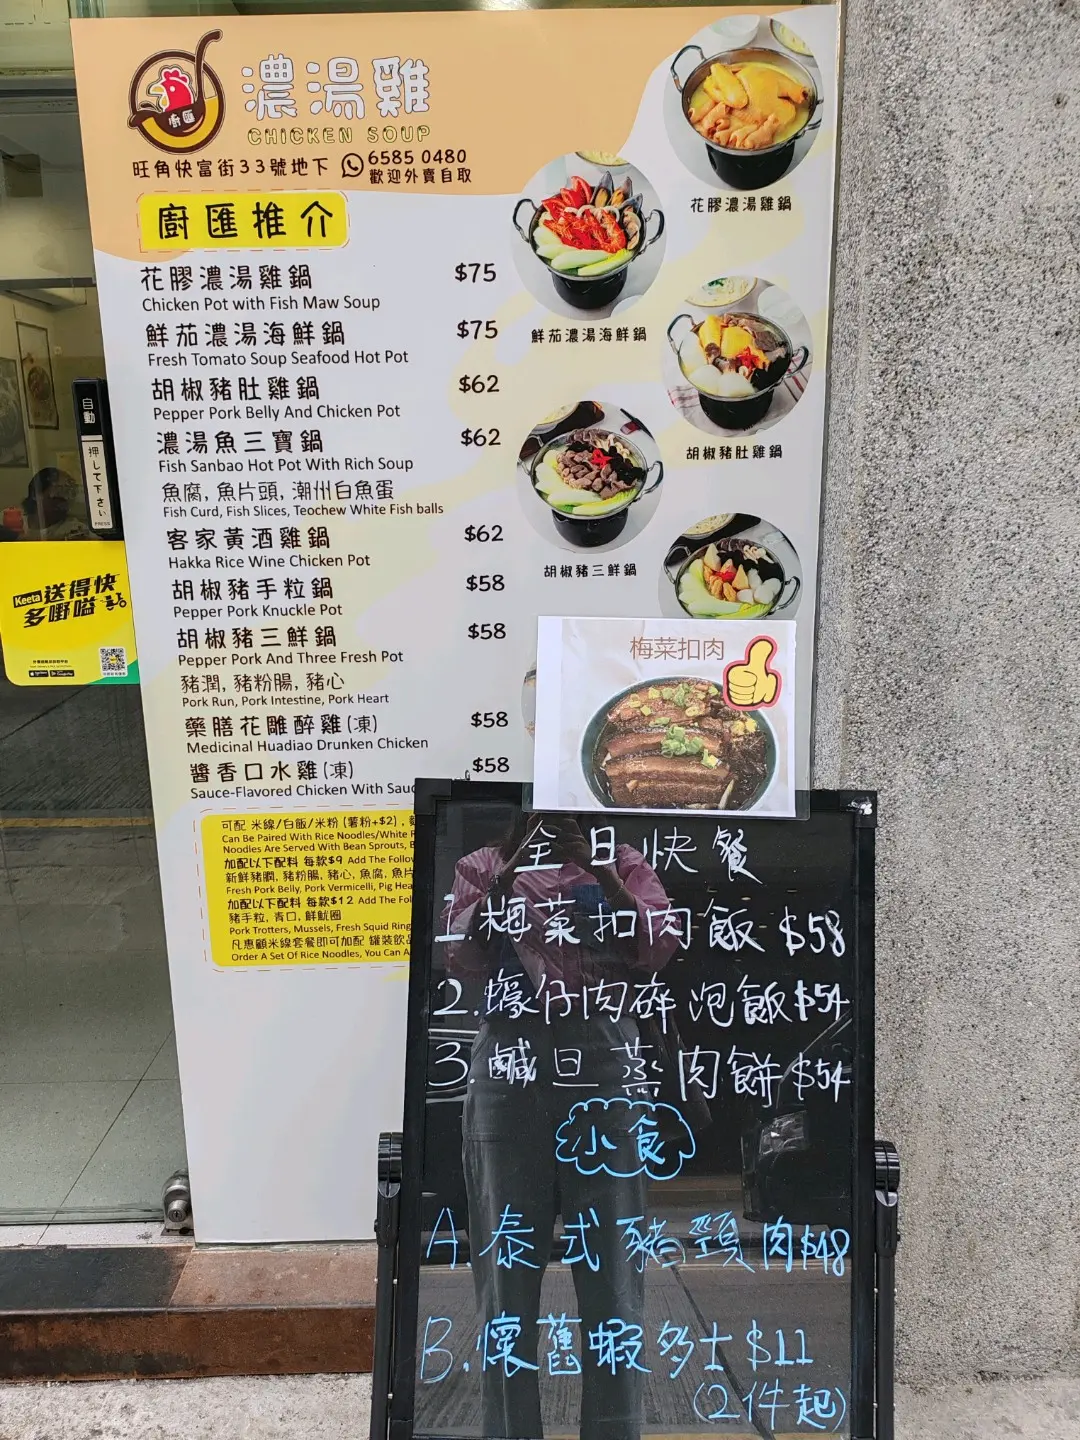 濃湯雞
CHICKEN SOUP
旺角快富街33號地下 6585 0480
歡迎外賣自取
廚匯
廚匯推介
花膠濃湯雞鍋 $75
Chicken Pot with Fish Maw Soup
鮮茄濃湯海鮮鍋 $75
Fresh Tomato Soup Seafood Hot Pot
胡椒豬肚雞鍋 $62
Pepper Pork Belly And Chicken Pot
濃湯魚三寶鍋 $62
Fish Sanbao Hot Pot With Rich Soup
魚腐, 魚片頭, 潮州白魚蛋
Fish Curd, Fish Slices, Teochew White Fish balls
客家黃酒雞鍋 $62
Hakka Rice Wine Chicken Pot
胡椒豬手粒鍋 $58
Pepper Pork Knuckle Pot
胡椒豬三鮮鍋 $58
Pepper Pork And Three Fresh Pot
豬潤, 豬粉腸, 豬心
Pork Run, Pork Intestine, Pork Heart
藥膳花雕醉雞(凍) $58
Medicinal Huadiao Drunken Chicken
醬香口水雞(凍) $58
Sauce-Flavored Chicken With Sauc
可配 米線/白飯/米粉 (薯粉+$2),
Can Be Paired With Rice Noodles/White R
Noodles Are Served With Bean Sprouts, B
加配以下配料 每款$9 Add The Follow
新鮮豬膶, 豬粉腸, 豬心, 魚腐, 魚片
Fresh Pork Belly, Pork Vermicelli, Pig Hea
加配以下配料 每款$12 Add The Fol
豬手粒, 青口, 鮮魷圈
Pork Trotters, Mussels, Fresh Squid Ring
凡惠顧米線套餐即可加配 罐裝飲品
Order A Set Of Rice Noodles, You Can A
花膠濃湯雞鍋
鮮茄濃湯海鮮鍋
胡椒豬肚雞鍋
胡椒豬三鮮鍋
梅菜扣肉
全日快餐
1.梅菜扣肉飯 $58
2.蠔仔肉碎泡飯 $54
3.鹹旦蒸肉餅 $54
小食
A.泰式豬頸肉 $48
B.懷舊蝦多士 $11
(2件起)
自動
押して下さい
PRESS
Keeta 送得快
多嘢嗌